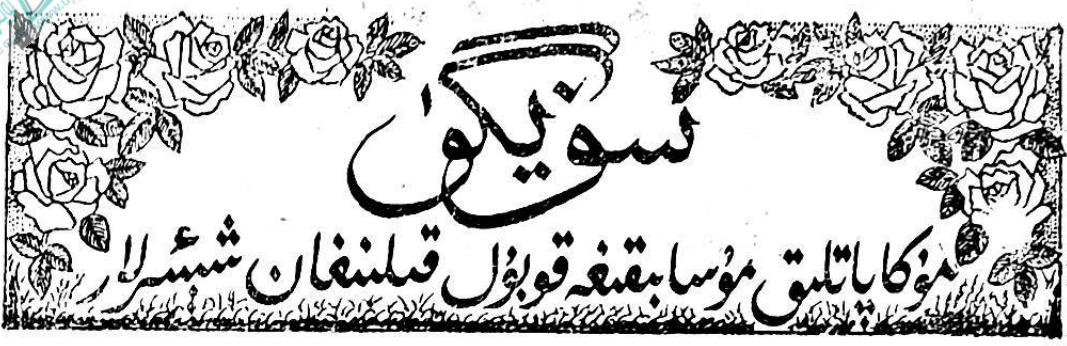 سۆيگۈ
مۇكاپاتلىق مۇسابىقىغە قوبۇل قىلىنغان شېئىرلار